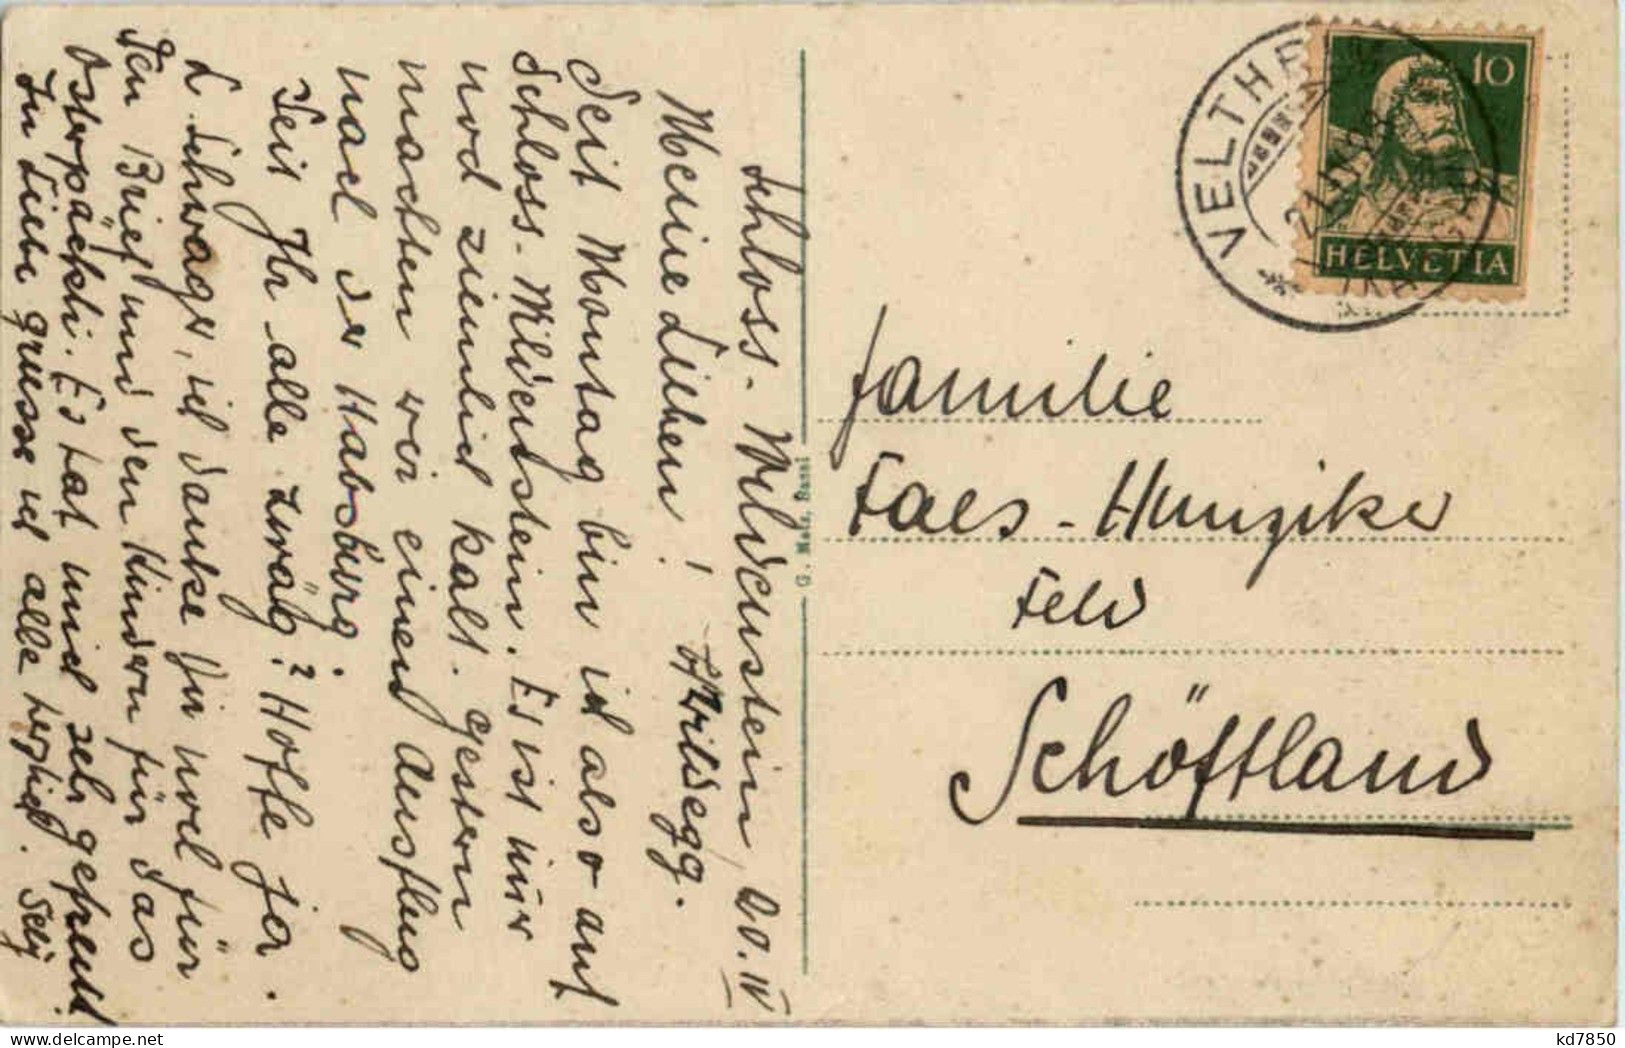 Schloss-Wildenstein, 20. IV
Meine Lieben! Wildegg.
Seit Montag bin ich also auf
Schloss-Wildenstein. Es ist nur
noch ziemlich kalt. Gestern
machten wir einen Ausflug
nach der Habsburg.
Seit Ihr alle zwäg? Hoffe ja.
L. Schwager, ich danke Dir noch für
den Brief und den Kindern für das
Osterpäckli. Es hat mich sehr gefreut.
In Liebe grüsse ich alle herzlich.
G. Metz, Basel
VELTHEIM
10
HELVETIA
Familie
Faes-Hunziker
Feld
Schöftland
kd7850